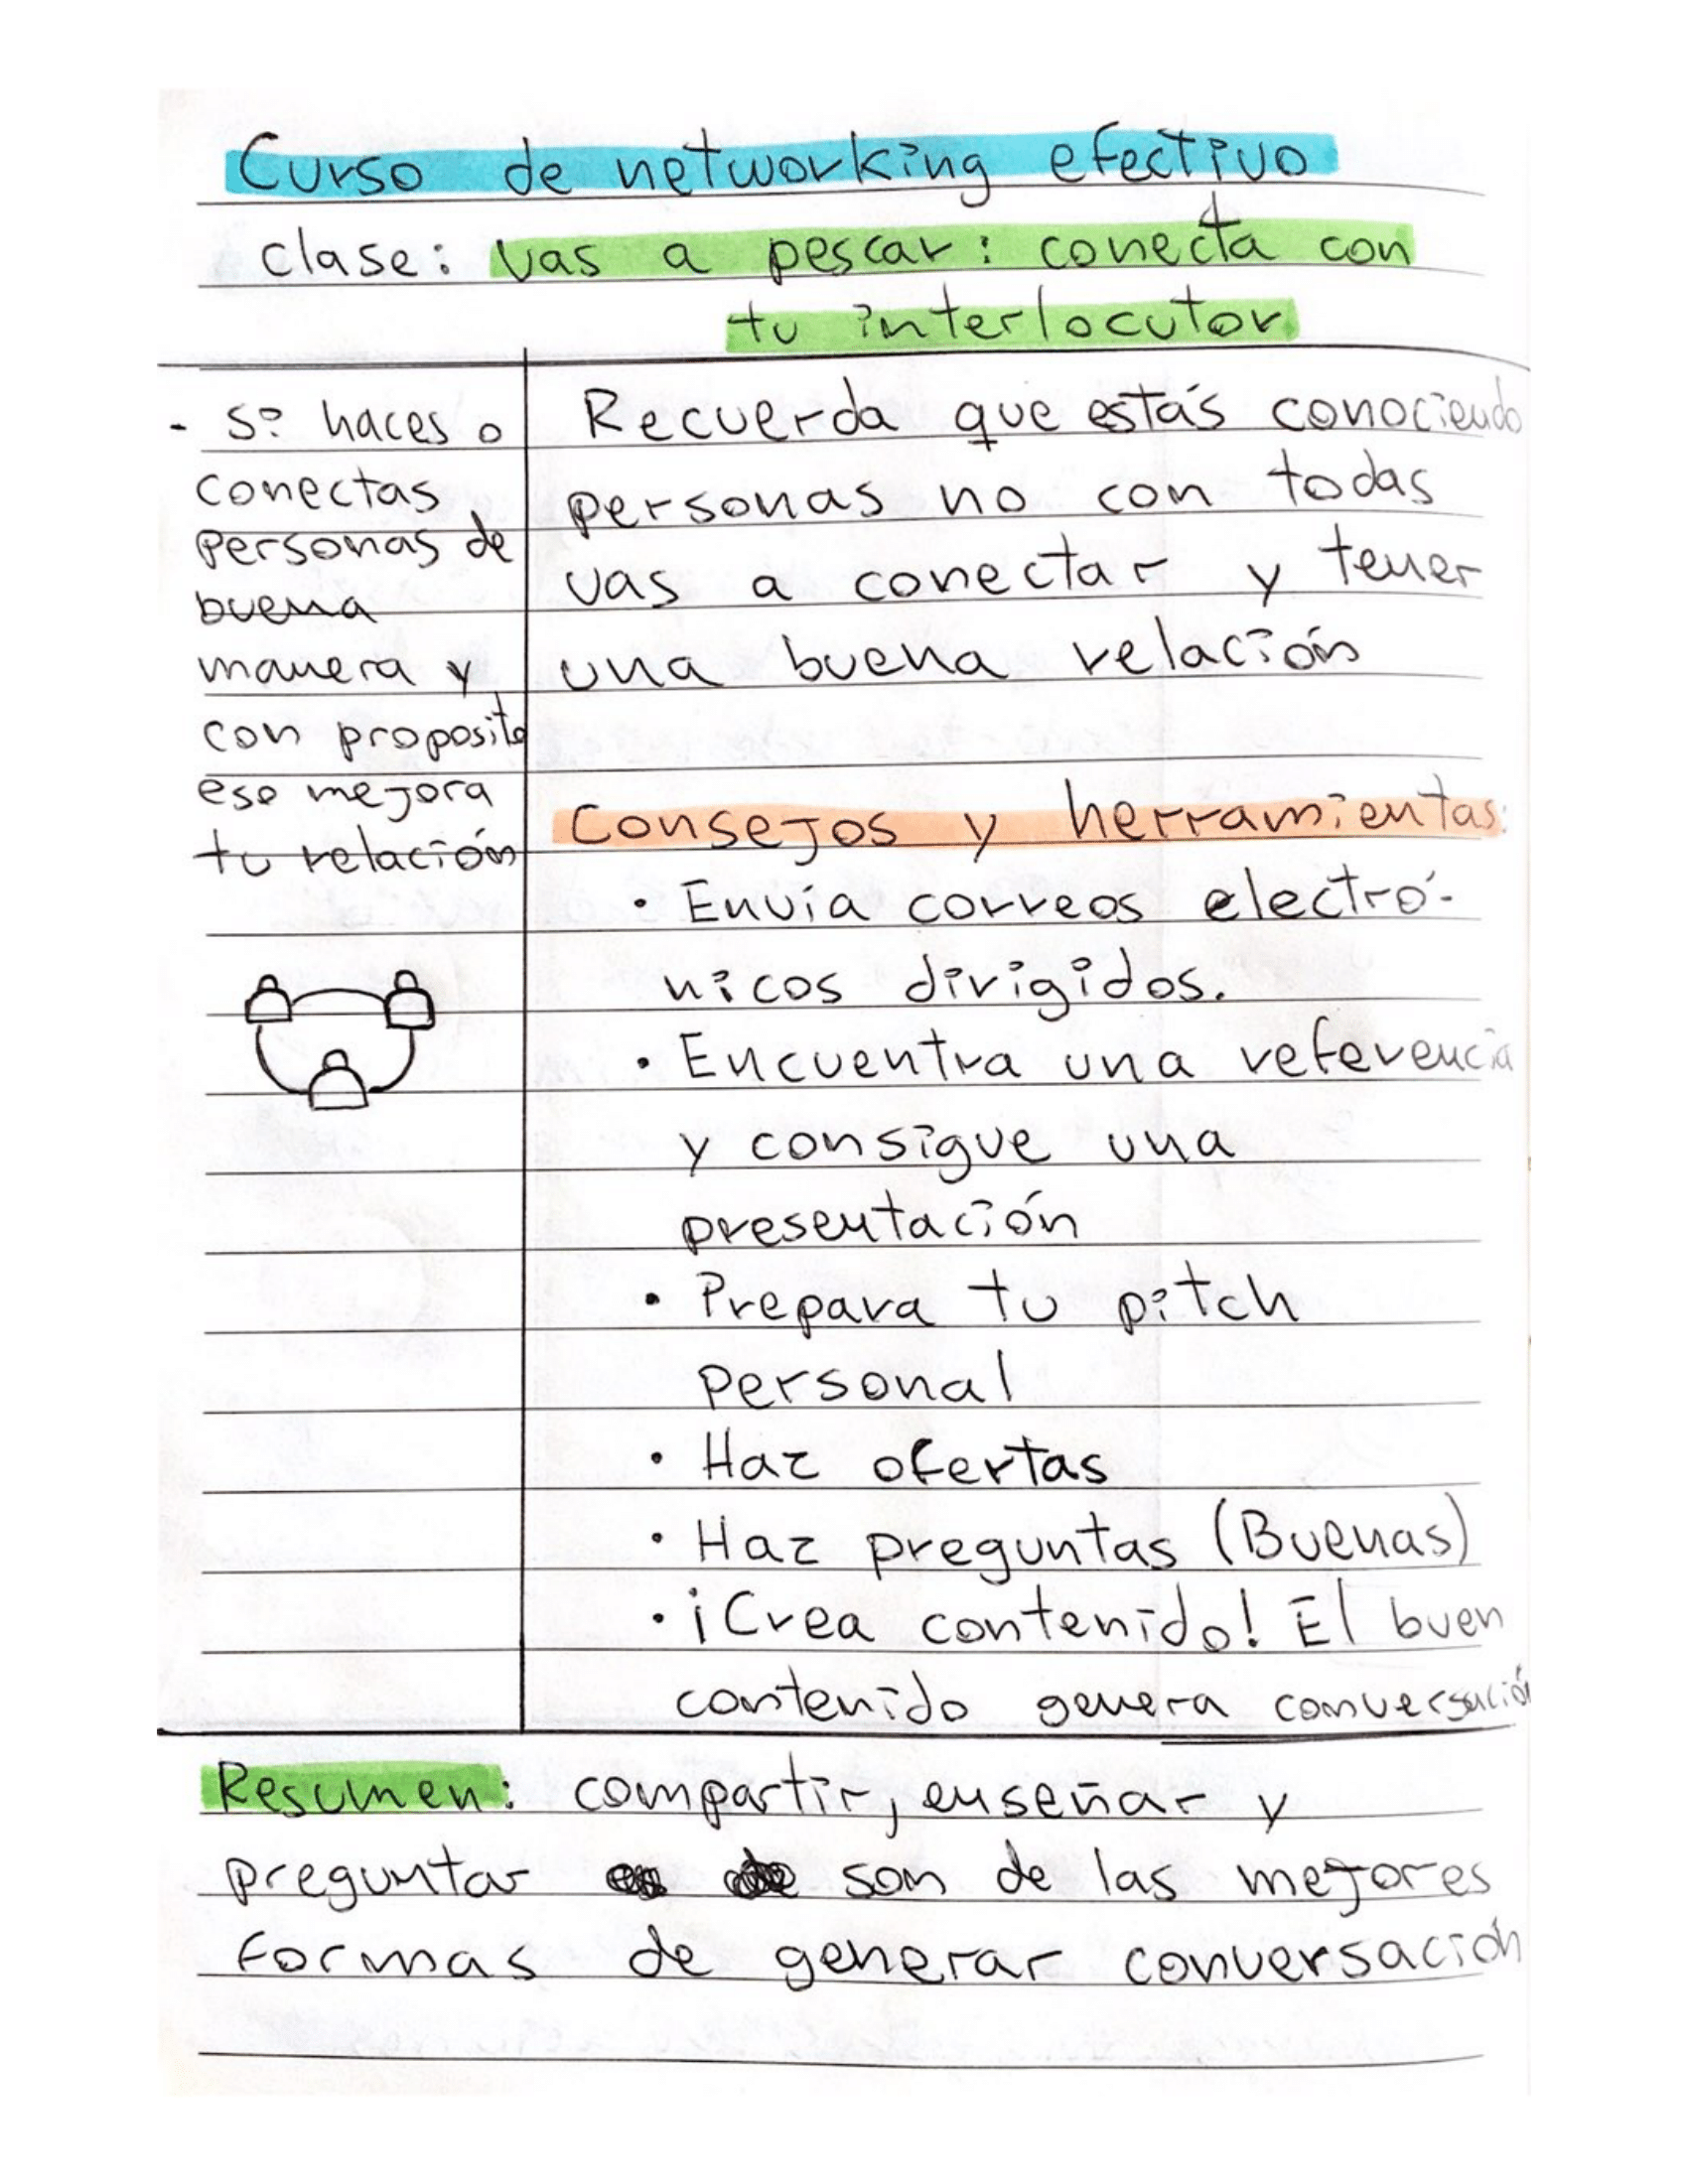 Curso de networking efectivo
clase: vas a pescar: conecta con
tu interlocutor
- Si haces o
conectas
personas de
buena
manera y
con proposito
eso mejora
tu relación
Recuerda que estás conociendo
personas no con todas
vas a conectar y tener
una buena relación
Consejos y herramientas:
• Envía correos electró-
nicos dirigidos.
• Encuentra una referencia
y consigue una
presentación
• Prepara tu pitch
personal
• Haz ofertas
• Haz preguntas (Buenas)
• ¡Crea contenido! El buen
contenido genera conversación
Resumen: compartir, enseñar y
preguntar son de las mejores
formas de generar conversación